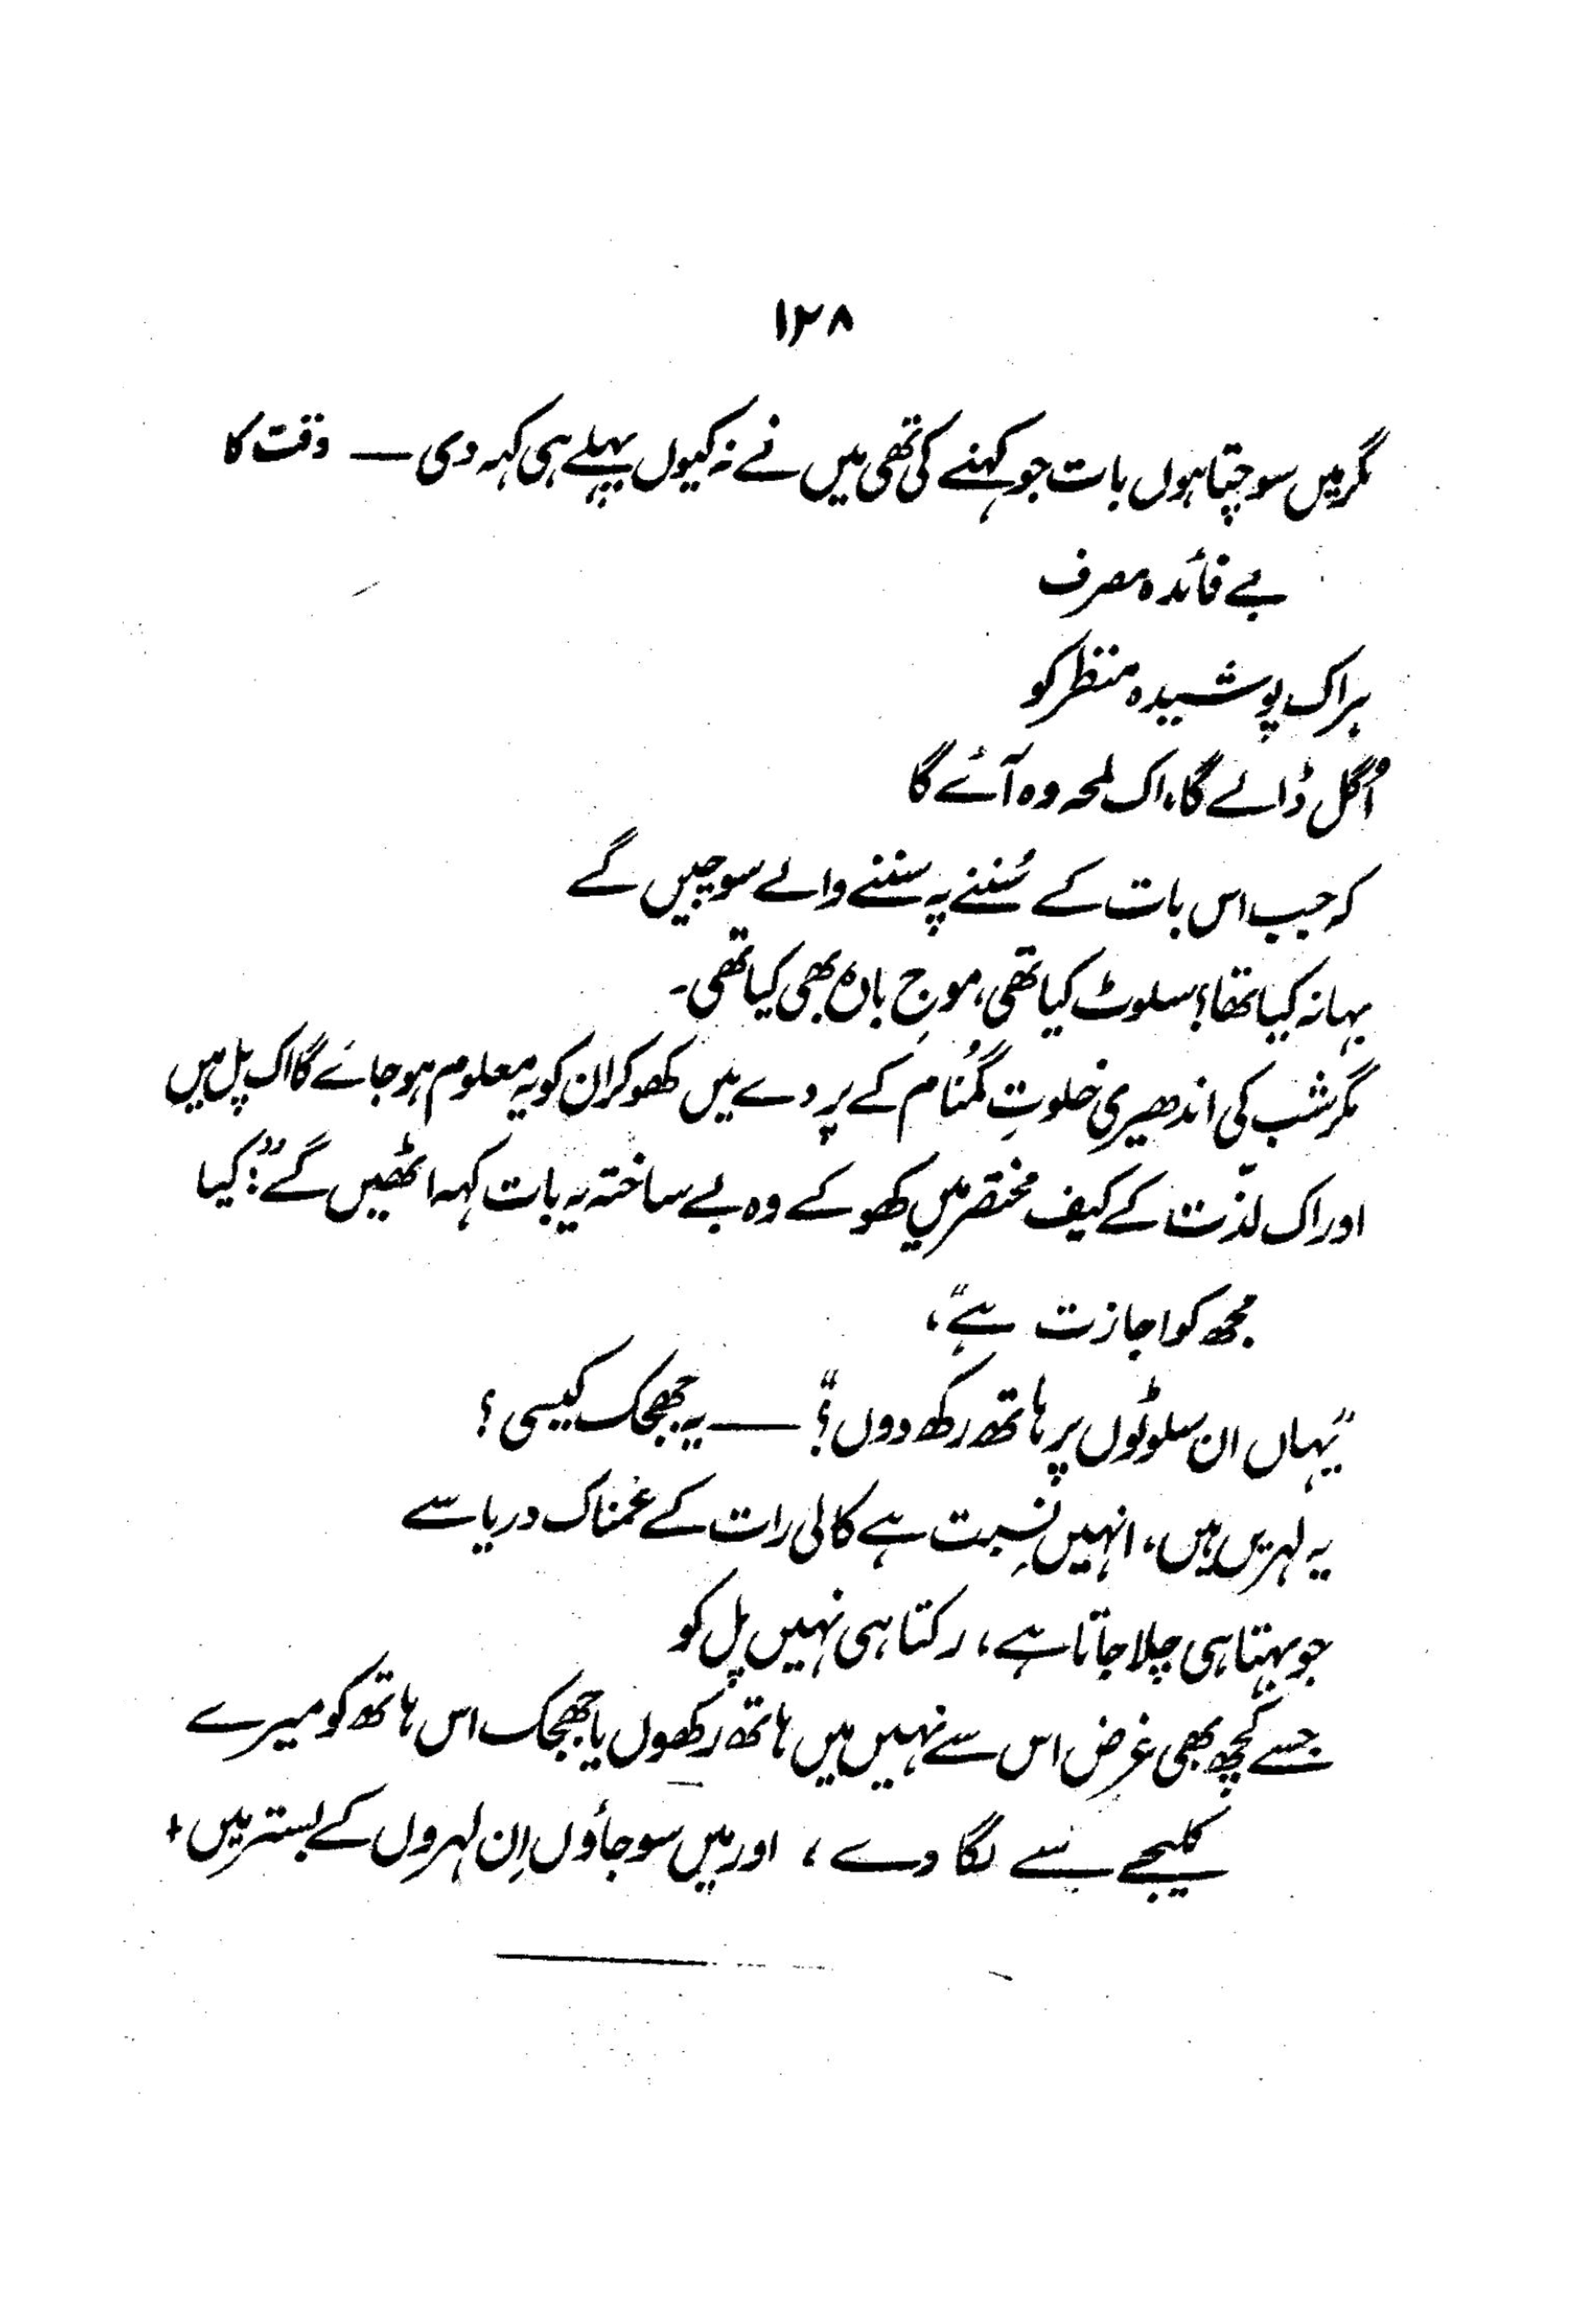 ۱۲۸
مگر میں سوچتا ہوں بات جو کہنے کی تھی میں نے نہ کیوں پہلے ہی کہہ دی — وقت کا
بے فائدہ مصرف
ہراک پوشیدہ منظر کو
اُگل ڈالے گا، اک لمحہ وہ آئے گا
کہ جب اس بات کے سُننے پہ سننے والے سوچیں گے
بہانہ کیا تھا؟ سلوٹ کیا تھی، موجِ بادہ بھی کیا تھی۔
مگر شب کی اندھیری خلوتِ گُمنام کے پردے میں کھو کر ان کو یہ معلوم ہو جائے گا اک پل میں
اور اک لذّت کے کیف مختصر میں کھو کے وہ بے ساختہ یہ بات کہہ اٹھیں گے: "کیا
مجھ کو اجازت ہے"،
"یہاں ان سلوٹوں پر ہاتھ رکھ دوں؟" — یہ جھجک کیسی؟
یہ لہریں ہیں، انہیں نِسبت ہے کالی رات کے غمناک دریا سے
جو بہتا ہی چلا جاتا ہے، رکتا ہی نہیں پل کو
جسے کچھ بھی غرض اس سے نہیں میں ہاتھ رکھوں یا جھجک اس ہاتھ کو میرے
کلیجے سے لگا دے، اور میں سو جاؤں اِن لہروں کے بستر میں +